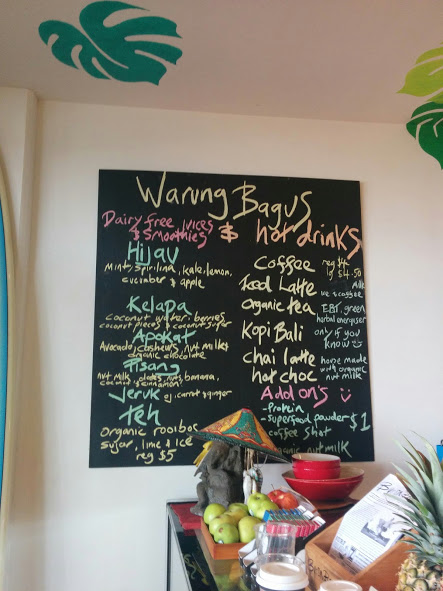 Warung Bagus
Dairy free juices
& smoothies
& hot drinks
Hijau
Mint, spirilina, kale, lemon,
cucumber & apple
Kelapa
coconut water, berries
coconut pieces & coconut sugar
Apokat
Avocado, cashews, nut milk &
organic chocolate
Pisang
nut milk, dates, banana,
coconut & cinnamon
Jeruk eg. carrot & ginger
teh
organic rooibos
sugar, lime & ice
reg $5
Coffee reg $4
lg $4.50
Iced Latte
organic tea EBT, green
herbal energiser
Kopi Bali only if you
know
chai latte home made
hot choc with organic
nut milk
Add on's
- Protein
- superfood powder $1
coffee shot
organic nut milk